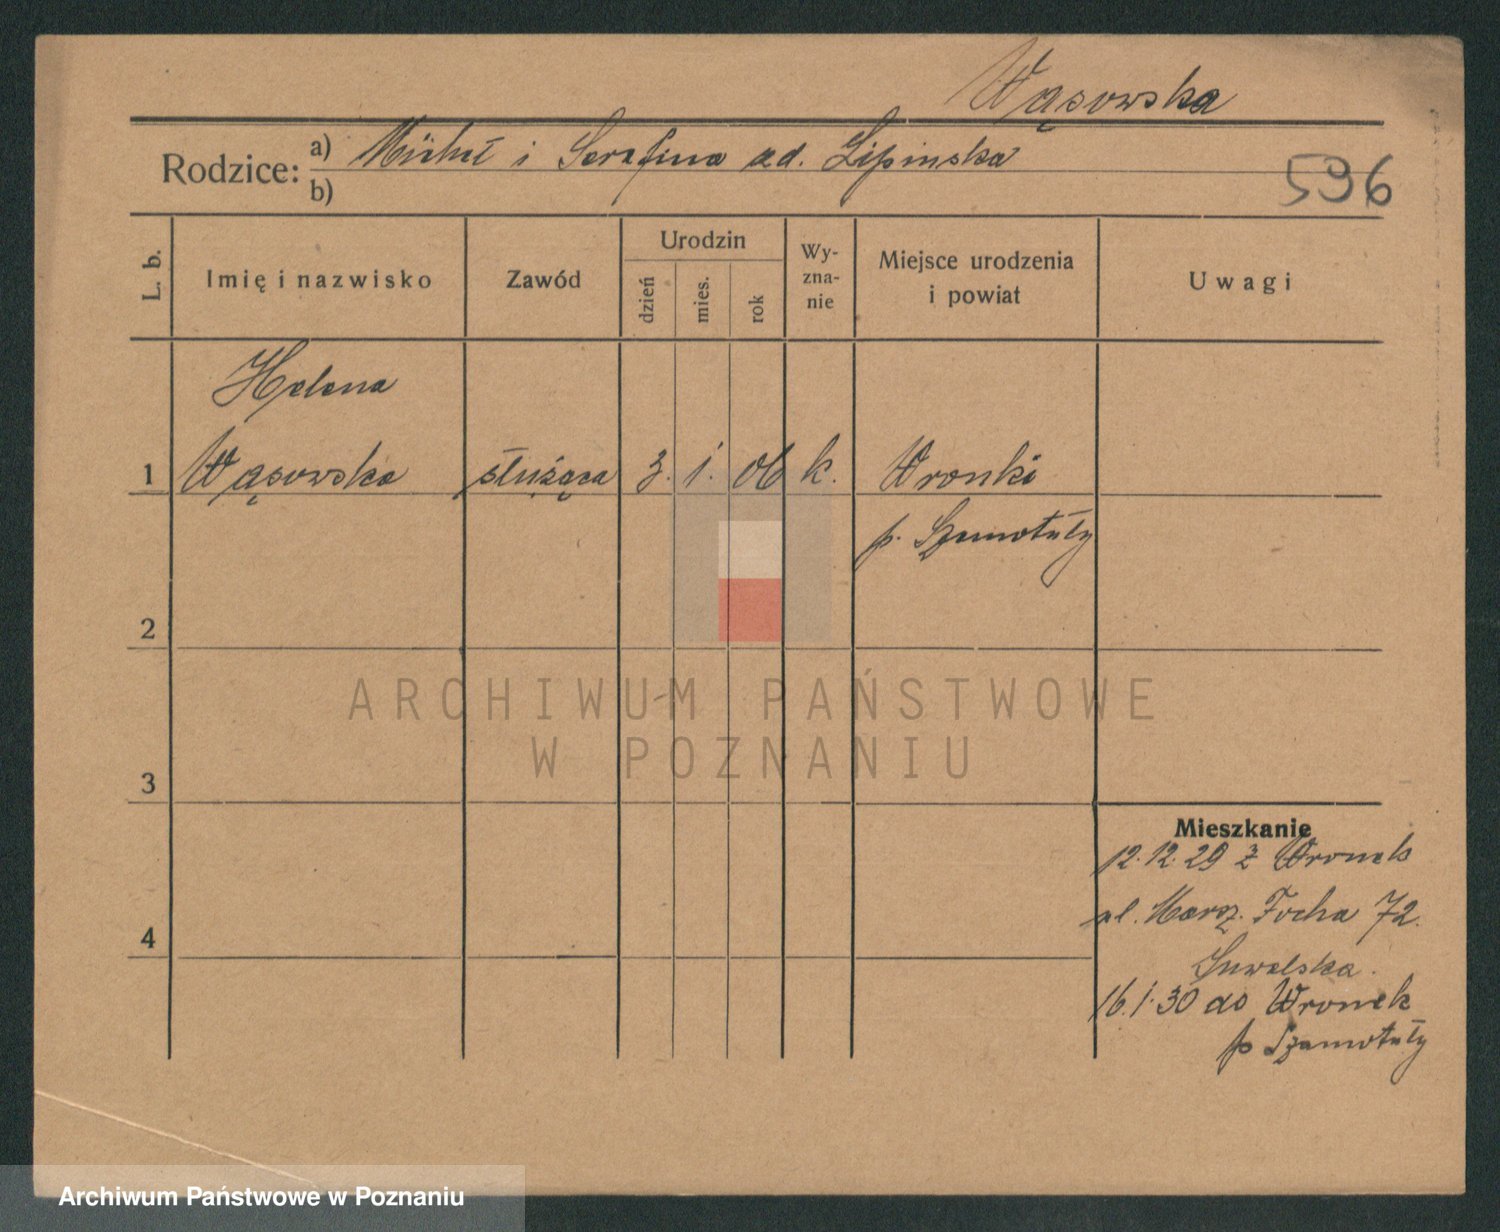 Wąsowska
Rodzice: a) Michał i Serafina zd. Lipinska
b)
596
L. b.
Imię i nazwisko
Zawód
Urodzin
dzień
mies.
rok
Wy-
zna-
nie
Miejsce urodzenia
i powiat
Uwagi
Helena
1 Wąsowska służąca 3. 1. 06 k. Wronki
p. Szamotuły
2
3
4
Mieszkanie
12.12.29 z Wronek
ul. Marsz. Focha 72.
16.1.30 do Wronek
p Szamotuły
ARCHIWUM PAŃSTWOWE
W POZNANIU
Archiwum Państwowe w Poznaniu